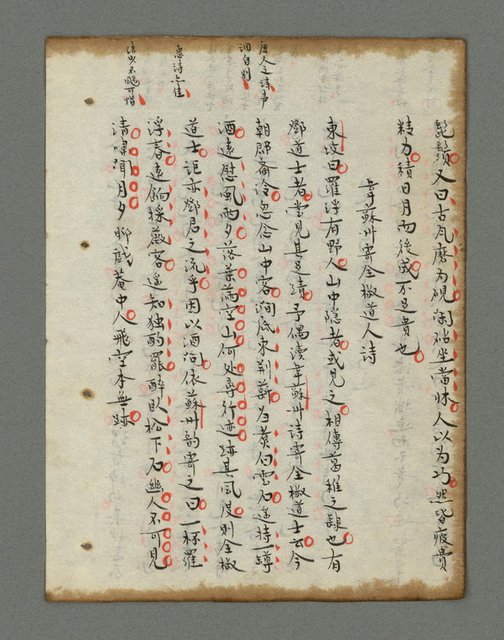 髭鬚又曰古瓦磨為硯閑砧坐當牀人以為巧然皆疲費
精力積日月而後成不足貴也
韋蘇州寄全椒道人詩
東坡曰羅浮有野人山中隱者或見之相傳葛稚之隸也有
鄧道士者嘗見其足跡予偶讀韋蘇州詩寄全椒道士云今
朝郡齋冷忽念山中客澗底束荆薪歸煑白雲石遙持一罇
酒遠慰風雨夕落葉滿空山何處尋行迹蹟其風度則全椒
道士詎亦鄧君之流乎因以酒問依蘇州韵寄之曰一杯羅
浮春遠餉採薇客遥知独酌罷醉臥松下石幽人不可見
清嘯聞月夕聊戲菴中人飛空本無跡
唐人之詩声
調自別
惠詩亦佳